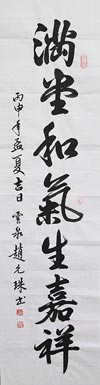 滿堂和氣生嘉祥
丙申年孟夏吉日 雲泉 趙允珠书